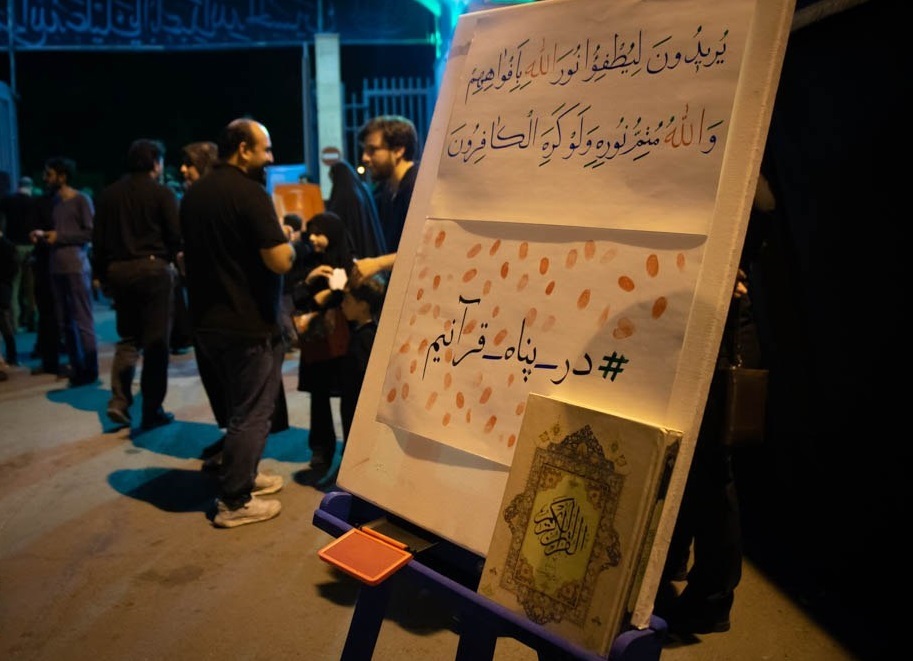 يُرِيدُونَ لِيُطْفِؤُا نُورَ اللهِ بِاَفْوٰاهِهِمْ
وَاللهُ مُتِمُّ نُورِهِ وَلَوْ كَرِهَ الْكٰافِرُونَ
#در_پناه_قرآنیم
القرآن الكريم